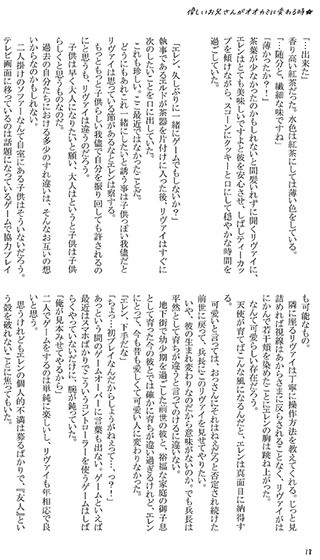 優しいお兄さんがオオカミに変わる時★
「…出来た」
香り高い紅茶だった。水色は紅茶にしては薄い色をしている。
「…随分と、繊細な味ですね」
「薄かったか?」
茶葉が少なかったのかもしれないと間髪いれずに聞くリヴァイに、
エレンはとても美味しいですよと彼を安心させ、しばしティーカッ
プを傾けながら、スコーンにクッキーと口にして穏やかな時間を
過ごしていた。
「エレン、久しぶりに一緒にゲームでもしないか?」
執事であるエルドが茶器を片付けに入った後、リヴァイはすぐに
次のしたいことを口に出していた。
これも珍しい。ここ最近ではなかったことだ。
どうにもあれこれ一緒にしたいと誘う事は子供っぽい我儘だと
リヴァイは思っている節があるとエレンは察する。
もっと子供らしい我儘で自分を振り回しても許されるの
にと思うも、リヴァイは違うのだろう。
子供は早く大人になりたいと願い、大人はというと子供は子供
らしくと思うものなのだ。
過去の自分たちにおける多少のすれ違いは、そんなお互いの想
いからなのかもしれない。
二人掛けのソファーなんて自室にある子供はそういないだろう。
テレビ画面に移っているのは話題になっているゲームで協力プレイ
も可能なもの。
隣に座るリヴァイは丁寧に操作方法を教えてくれる。じっと見
詰めれば視線はあからさまに反らされることなく、リヴァイがは
にかんで若干頬を染めたことにエレンの胸は跳ね上がった。
なんて可愛らしい存在だろう。
天使が育てばこんな風になるんだと、エレンは真面目に納得す
る。
可愛いと言っては、おっさんにそれはねえだろと否定され続けた
前世に戻って、兵長にこのリヴァイを見せてやりたい。
いや、彼の生まれ変わりなのだから意味がないのか、でも兵長は
平然として育ちが違うと言ってのけるに違いない。
地下街で幼少期を過ごした前世の彼と、裕福な家庭の御子息
として育った今の彼とでは確かに育ちが違い過ぎるけれど、エレン
にとって、今も昔も愛しくて可愛い人に変わりなかった。
「エレン、下手だな」
「ちょっ、初プレイなんだからしょうがねえって…、わっ!」
あっという間のゲームオーバーに言葉も出ない。ゲームといえば
最近はスマホばかりでこういうコントローラーを使うゲームはしば
らくやっていないだけに、腕が鈍っていた。
「俺が見本みせてやるから」
二人でゲームをするのは単純に楽しい。リヴァイも年相応でい
いと思う。
思うけれどもエレンの個人的不満は募るばかりで、『友人』とい
う殻を破れないことに焦っていた。
18